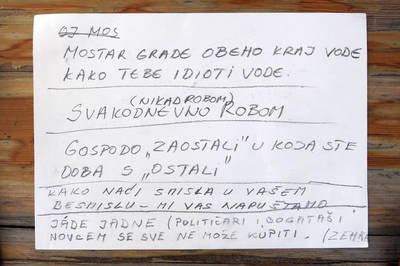 OJ MOS
MOSTAR GRADE OBEHO KRAJ VODE
KAKO TEBE IDIOTI VODE.
(NIKAD ROBOM)
SVAKODNEVNO ROBOM
GOSPODO „ZAOSTALI" U KOJA STE
DOBA S „OSTALI"
KAKO NAĆI SMISLA U VAŠEM
BESMISLU - MI VAS NAPUŠTAMO
JADE JADNE (POLITIČARI I BOGATAŠI
NOVCEM SE SVE NE MOŽE KUPITI.